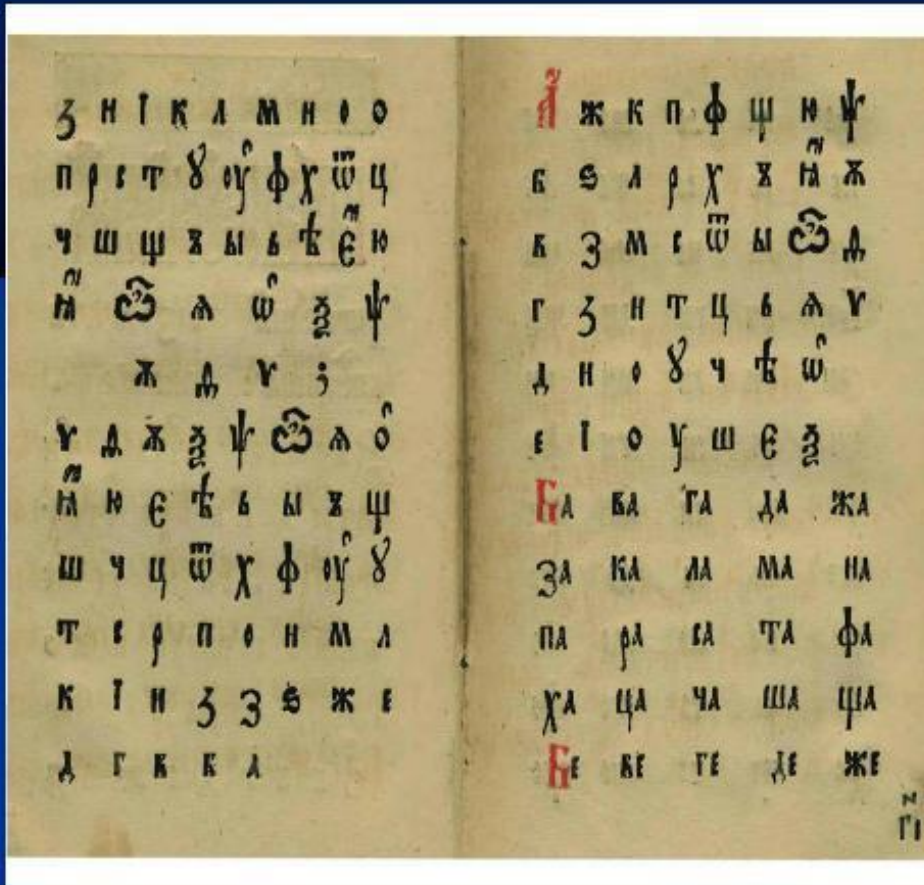 ꙁ н ї к л м н о о
п р с т ꙋ оу҆ ф х ѿ ц
ч ш щ ъ ы ь ѣ є҆ ю
ꙗ҆ ѽ ѧ ѡ҆ ѯ ѱ
ѫ д ѵ ;
ѵ д ѫ ѯ ѱ ѽ ѧ о҆
ꙗ҆ ю є ѣ ь ы ъ щ
ш ч ц ѿ х ф оу҆ ꙋ
т с р п о н м л
к ї и ꙁ з ѕ ж е
д г в б а
А҆ ж к п ф щ ю ѱ
б ѕ л р х ъ ꙗ҆ ѫ
в з м с ѿ ы ѽ д
г ꙁ н т ц ь ѧ ѵ
д и о ꙋ ч ѣ ѡ҆
е ї о у ш є ѯ
Ба ва га да жа
за ка ла ма на
па ра са та фа
ха ца ча ша ща
Бе ве ге де же
гі